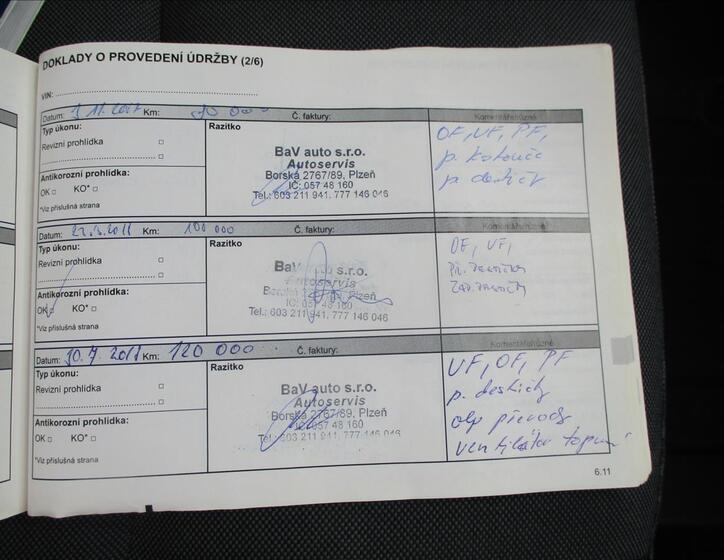 DOKLADY O PROVEDENÍ ÚDRŽBY (2/6)
VIN:
Datum: 3.11.2017 Km: 90 000 Č. faktury: Komentáře/různé
Typ úkonu: Razítko
Revizní prohlídka
BaV auto s.r.o.
Autoservis
Borská 2767/89, Plzeň
IČ: 057 48 160
Tel.: 603 211 941, 777 146 046
Antikorozní prohlídka:
OK KO*
*Viz příslušná strana
OF, VF, PF,
p. kotouče
p. destičk
Datum: Km: 100 000 Č. faktury: Komentáře/různé
Typ úkonu: Razítko
Revizní prohlídka
BaV s.r.o.
Autoservis
Borská Plzeň
IČ: 057 48 160
Tel.: 603 211 941, 777 146 046
Antikorozní prohlídka:
OK KO*
*Viz příslušná strana
OF, VF,
Datum: Km: 120 000 Č. faktury: Komentáře/různé
Typ úkonu: Razítko
Revizní prohlídka
BaV auto s.r.o.
Autoservis
Borská 2767/89, Plzeň
IČ: 057 48 160
Tel.: 603 211 941, 777 146 046
Antikorozní prohlídka:
OK KO*
*Viz příslušná strana
VF, OF, PF
p. destičky
olej převody
ventilátor topení
6.11